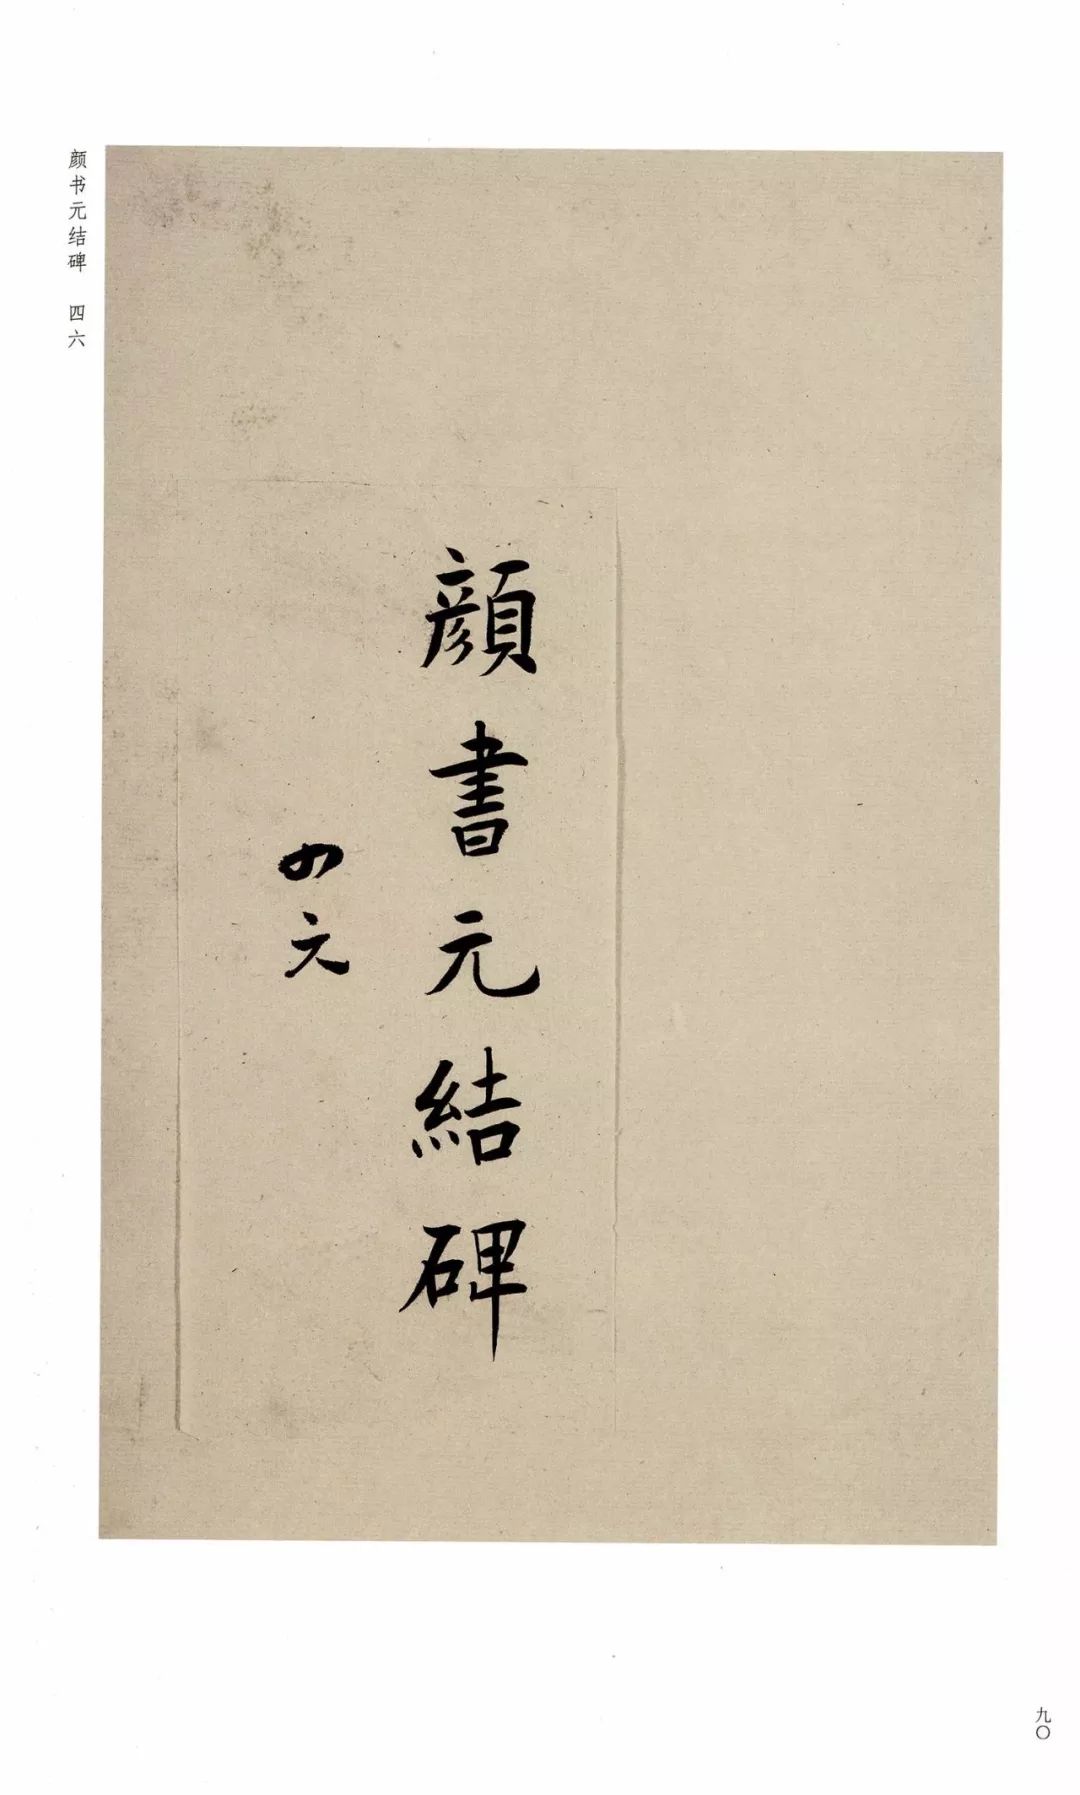 顏書元結碑
四六
颜书元结碑 四六
九〇